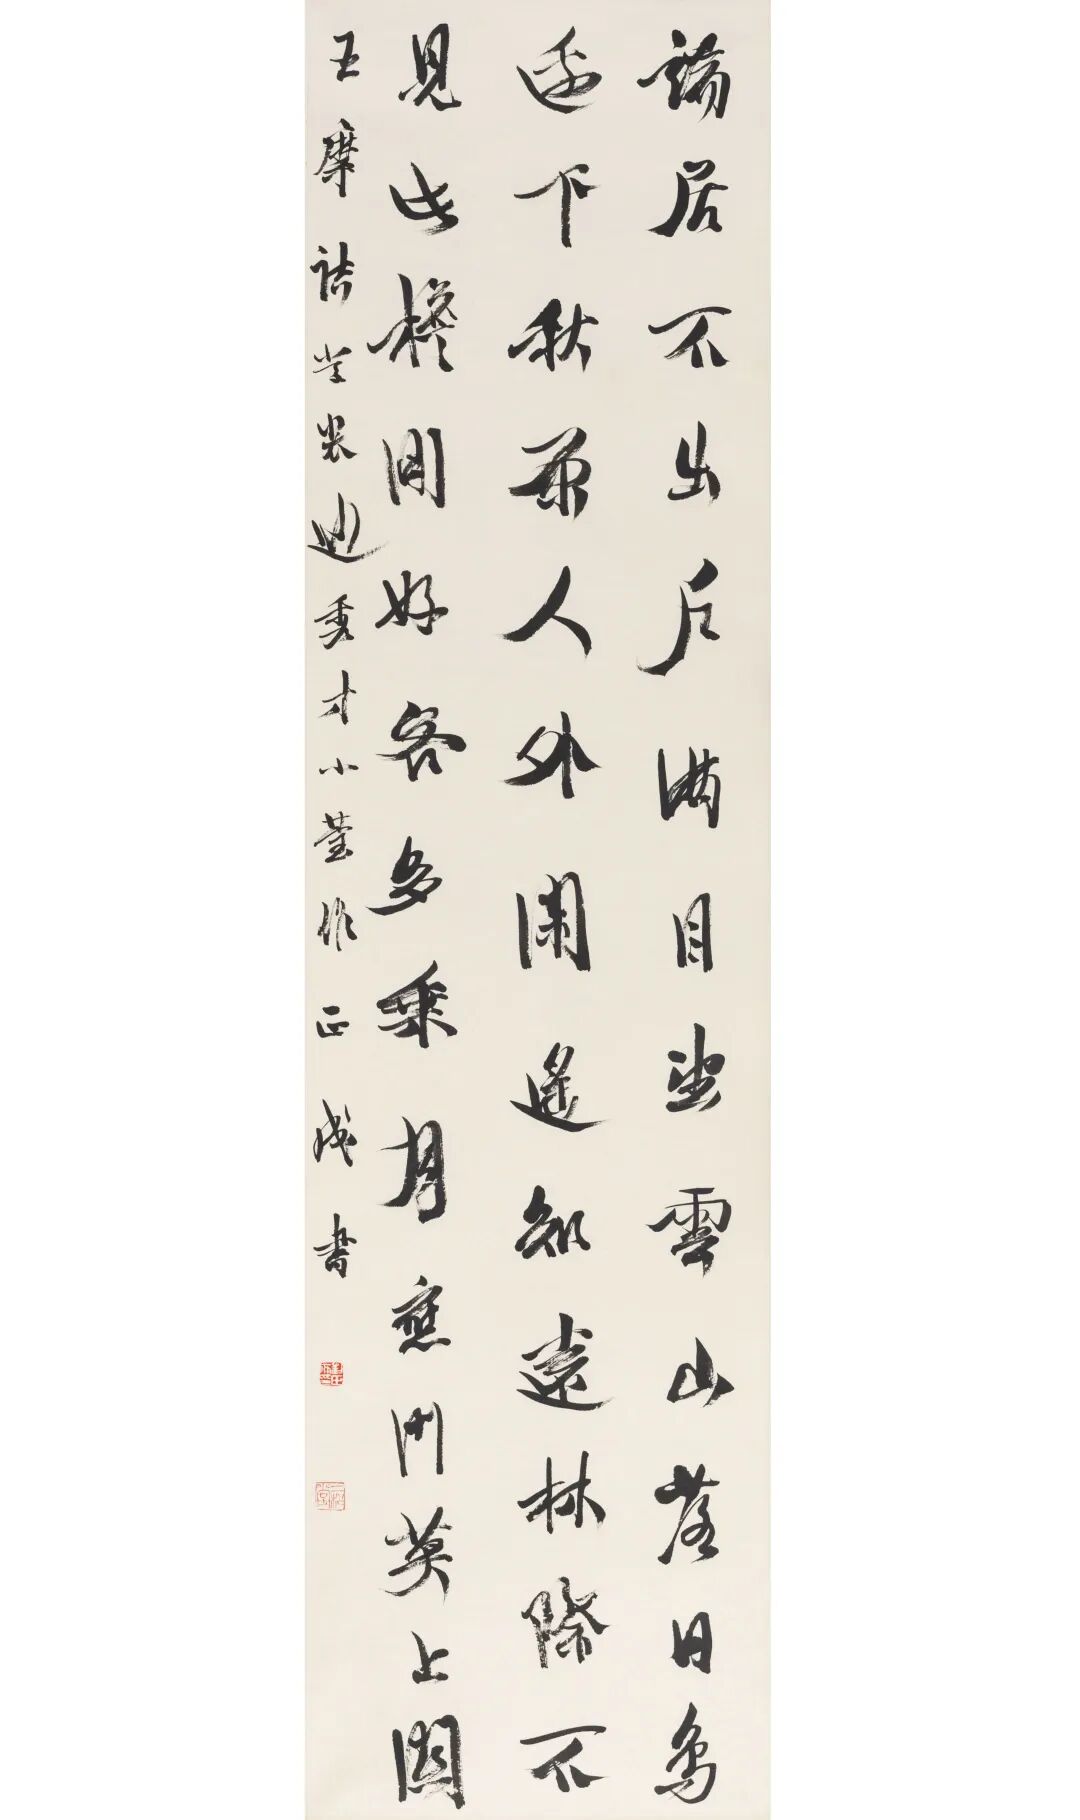 端居不出戶滿目望雲山落日鳥
邊下秋原人外閑遙知遠林際不
見此檐間好客多乘月應門莫上關
王摩詰登裴迪秀才小臺作正成書